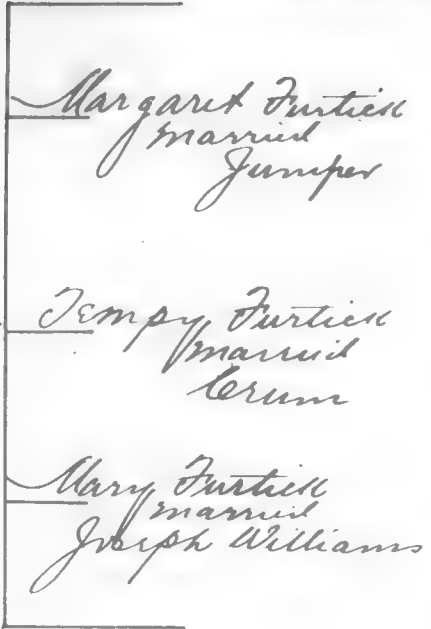 Margaret Furtick
married
Jumper
Tempy Furtick
married
Crum
Mary Furtick
married
Joseph Williams